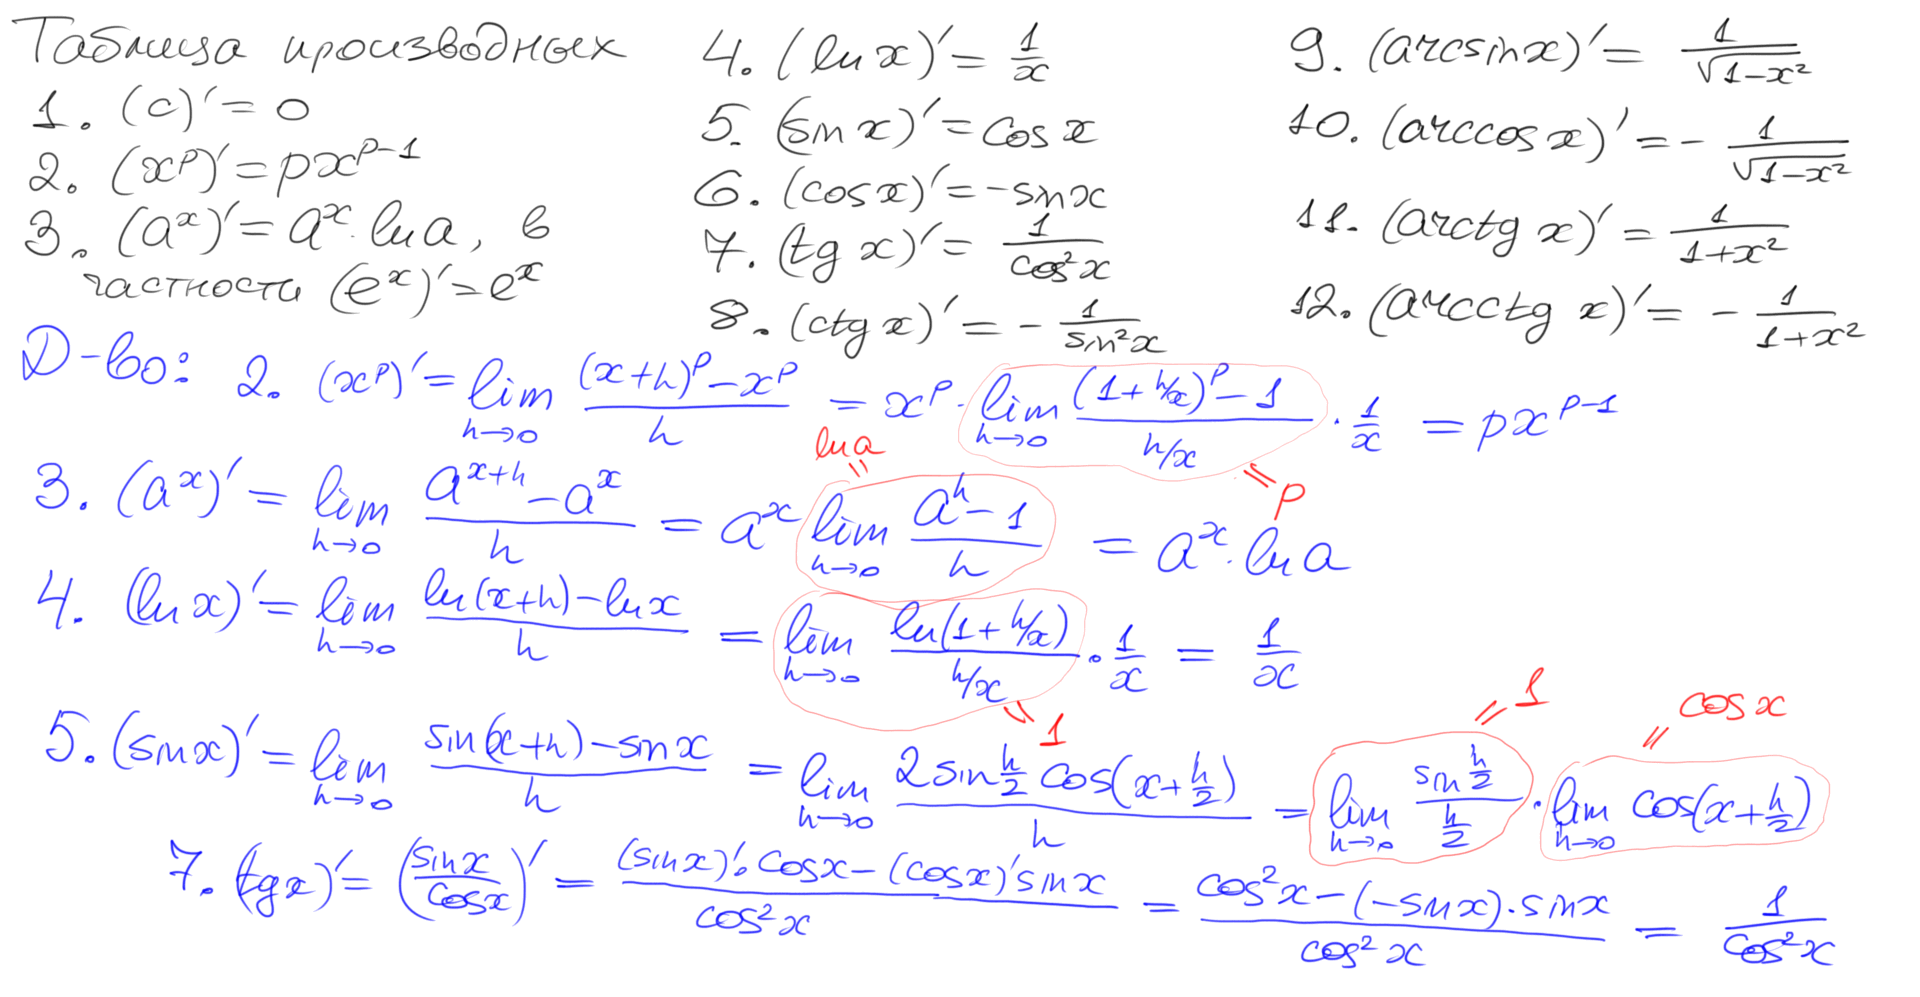 Таблица производных
1. (c)′ = 0
2. (x^p)′ = px^{p-1}
3. (a^x)′ = a^x · ln a, в
частности (e^x)′ = e^x
4. (ln x)′ = 1/x
5. (sin x)′ = cos x
6. (cos x)′ = -sin x
7. (tg x)′ = 1/cos²x
8. (ctg x)′ = - 1/sin²x
9. (arcsin x)′ = 1/√(1-x²)
10. (arccos x)′ = - 1/√(1-x²)
11. (arctg x)′ = 1/(1+x²)
12. (arcctg x)′ = - 1/(1+x²)
Д-во: 2. (x^p)′ = lim_{h→0} ((x+h)^p - x^p)/h = x^p · lim_{h→0} ((1+h/x)^p - 1)/(h/x) · 1/x = px^{p-1}
= p
ln a =
3. (a^x)′ = lim_{h→0} (a^{x+h} - a^x)/h = a^x lim_{h→0} (a^h - 1)/h = a^x · ln a
4. (ln x)′ = lim_{h→0} (ln(x+h) - ln x)/h = lim_{h→0} ln(1+h/x)/(h/x) · 1/x = 1/x
= 1
= 1
= cos x
5. (sin x)′ = lim_{h→0} (sin(x+h) - sin x)/h = lim_{h→0} (2 sin h/2 cos(x+h/2))/h = lim_{h→0} (sin h/2)/(h/2) · lim_{h→0} cos(x+h/2)
7. (tg x)′ = (sin x/cos x)′ = ((sin x)′ · cos x - (cos x)′ sin x)/cos²x = (cos²x - (-sin x) · sin x)/cos²x = 1/cos²x